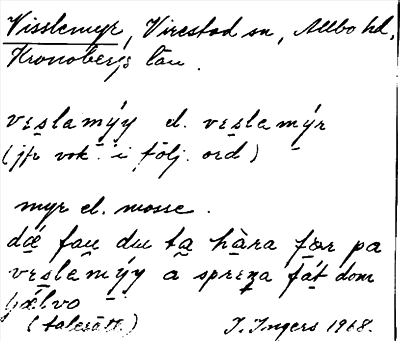 Visslemyr, Virestad sn, Allbo hd,
Kronobergs län.
vęslamýy el. vęslemýr
(jfr vok. i följ. ord)
myr el. mosse.
dǽ fau du ta hàra fær pa
vęslemýy å spręŋa fát dom
sjælvo
(talesätt) I. Ingers 1968.